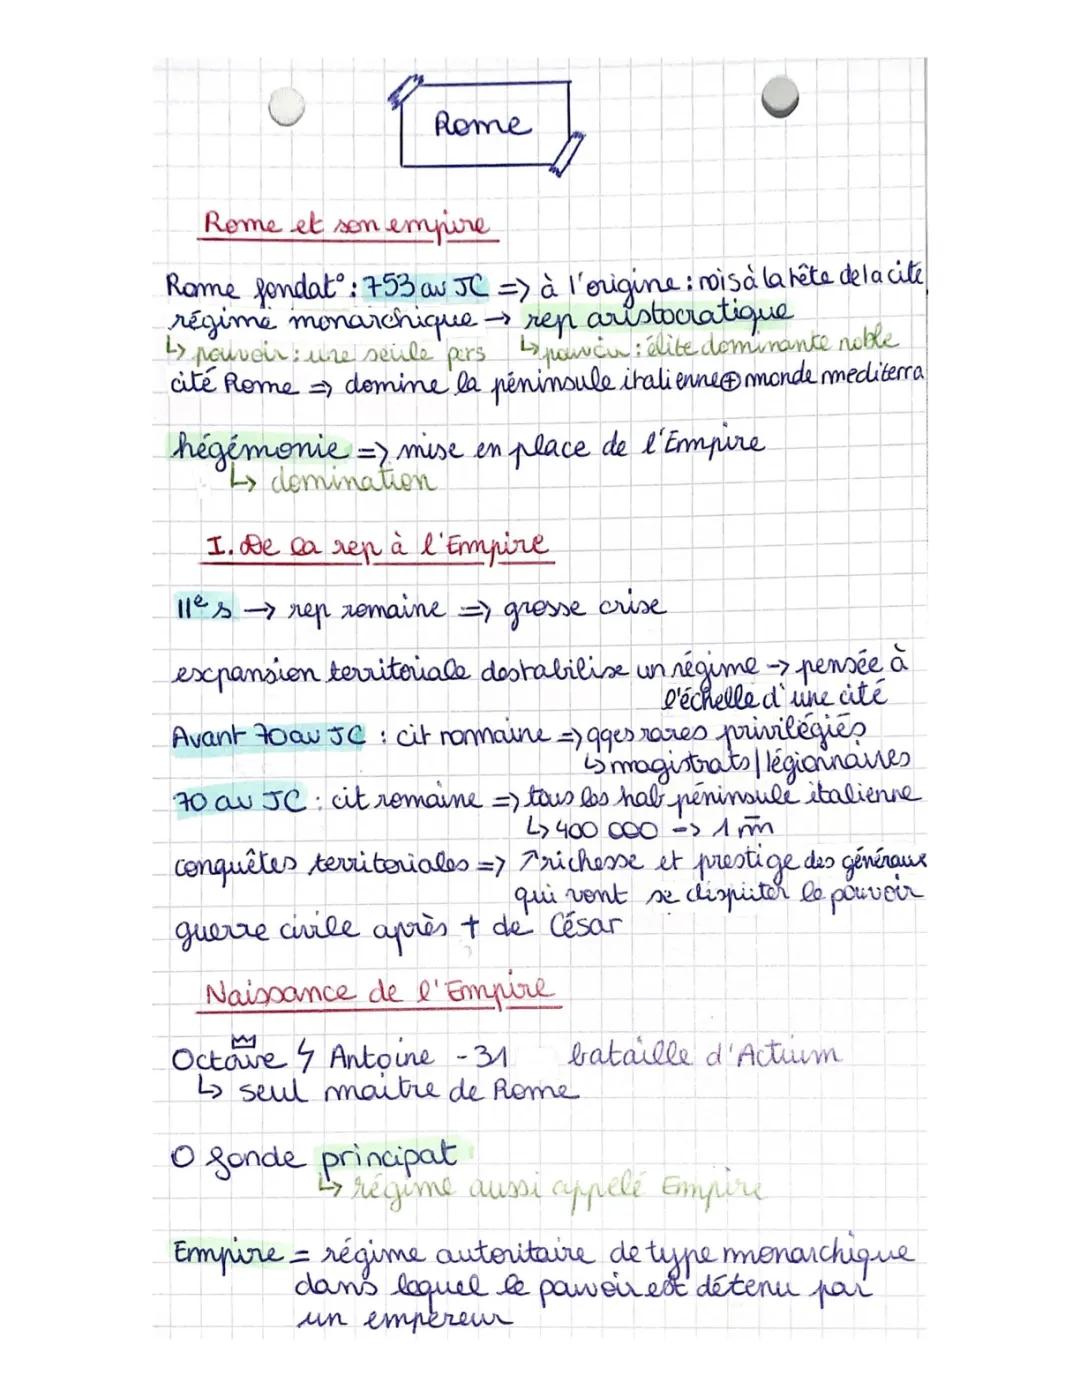 Rome
Rome et son empire
Rome fondat° : 753 av JC => à l'origine : rois à la tête de la cité
régime monarchique → rep aristocratique
↳ pouvoir : une seule pers ↳ pouvoir : élite dominante noble
cité Rome => domine la péninsule italienne ⊕ monde mediterra
hégémonie => mise en place de l'Empire
↳ domination
I. De la rep à l'Empire
IIe s → rep romaine => grosse crise
expansion territoriale destabilise un régime → pensée à
l'échelle d'une cité
Avant 70 av JC : cit romaine => qqes rares privilégiés
↳ magistrats / légionnaires
70 av JC : cit romaine => tous les hab péninsule italienne
↳ 400 000 -> 1 m
conquêtes territoriales => ↗ richesse et prestige des généraux
qui vont se disputer le pouvoir
guerre civile après † de César
Naissance de l'Empire
Octave ϟ Antoine - 31 bataille d'Actium
↳ seul maitre de Rome
O fonde principat
↳ régime aussi appelé Empire
Empire = régime autoritaire de type monarchique
dans lequel le pouvoir est détenu par
un empereur